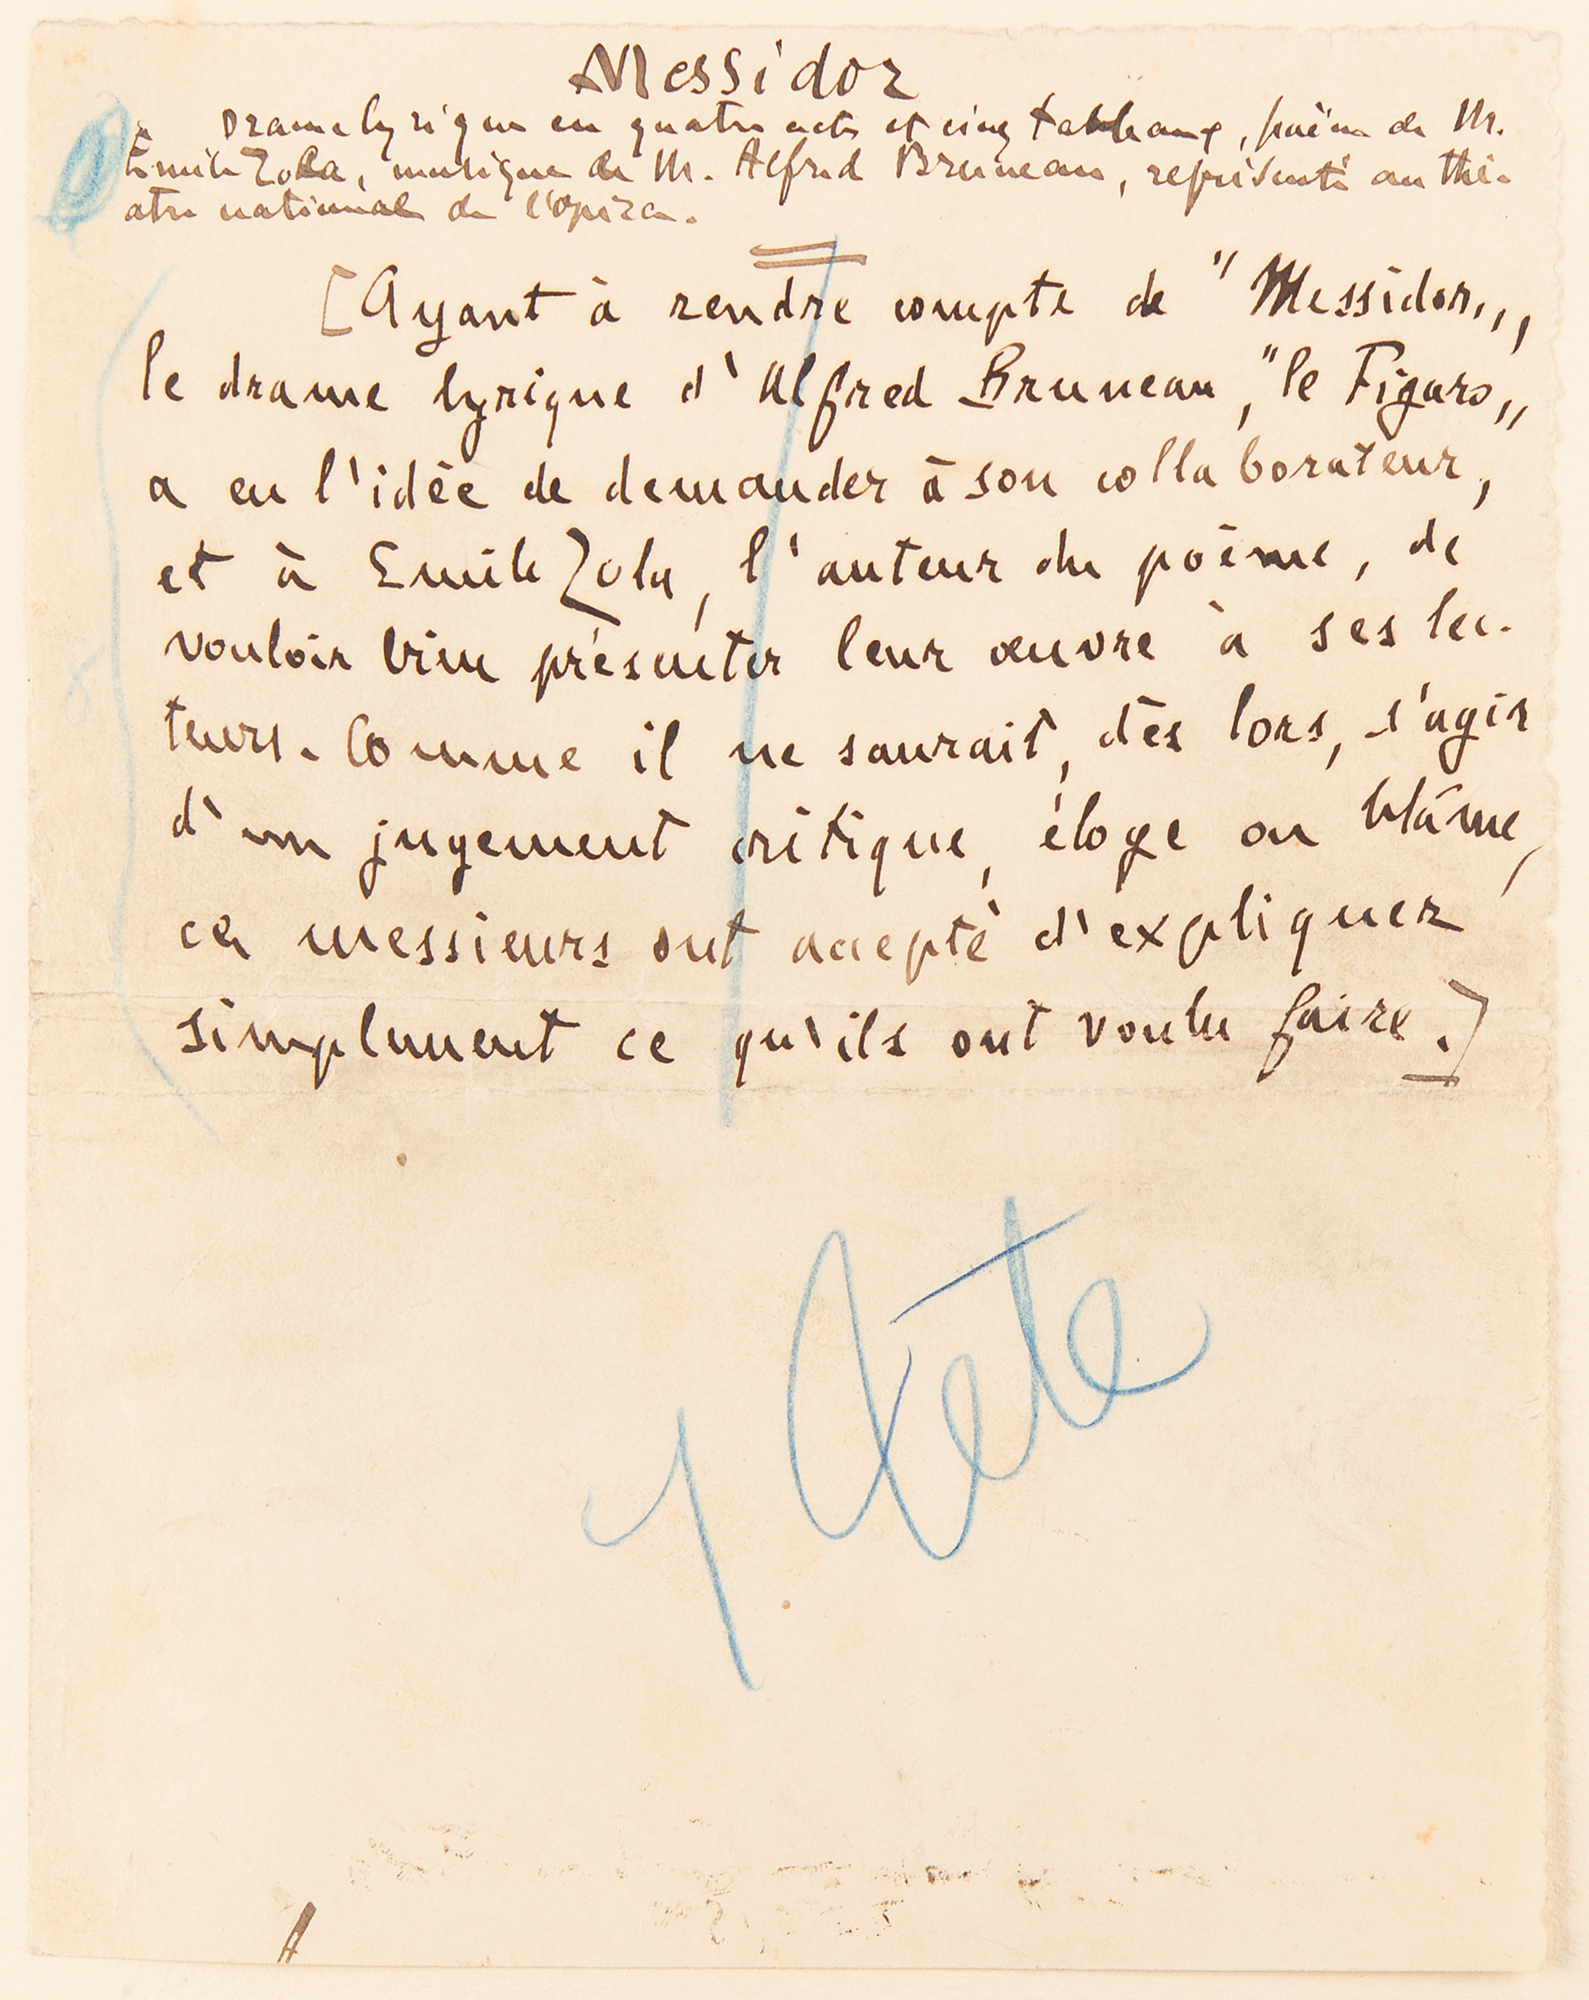 Messidor
Drame lyrique en quatre actes et cinq tableaux, poème de M.
Emile Zola, musique de M. Alfred Bruneau, représenté au thé-
atre national de l'Opéra.
[Ayant à rendre compte de "Messidor,,,
le drame lyrique d'Alfred Bruneau, "le Figaro,,
a eu l'idée de demander à son collaborateur,
et à Emile Zola, l'auteur du poème, de
vouloir bien présenter leur œuvre à ses lec-
teurs. Comme il ne saurait, dès lors, s'agir
d'un jugement critique, éloge ou blâme,
ces messieurs ont accepté d'expliquer
simplement ce qu'ils ont voulu faire.]
1 tête